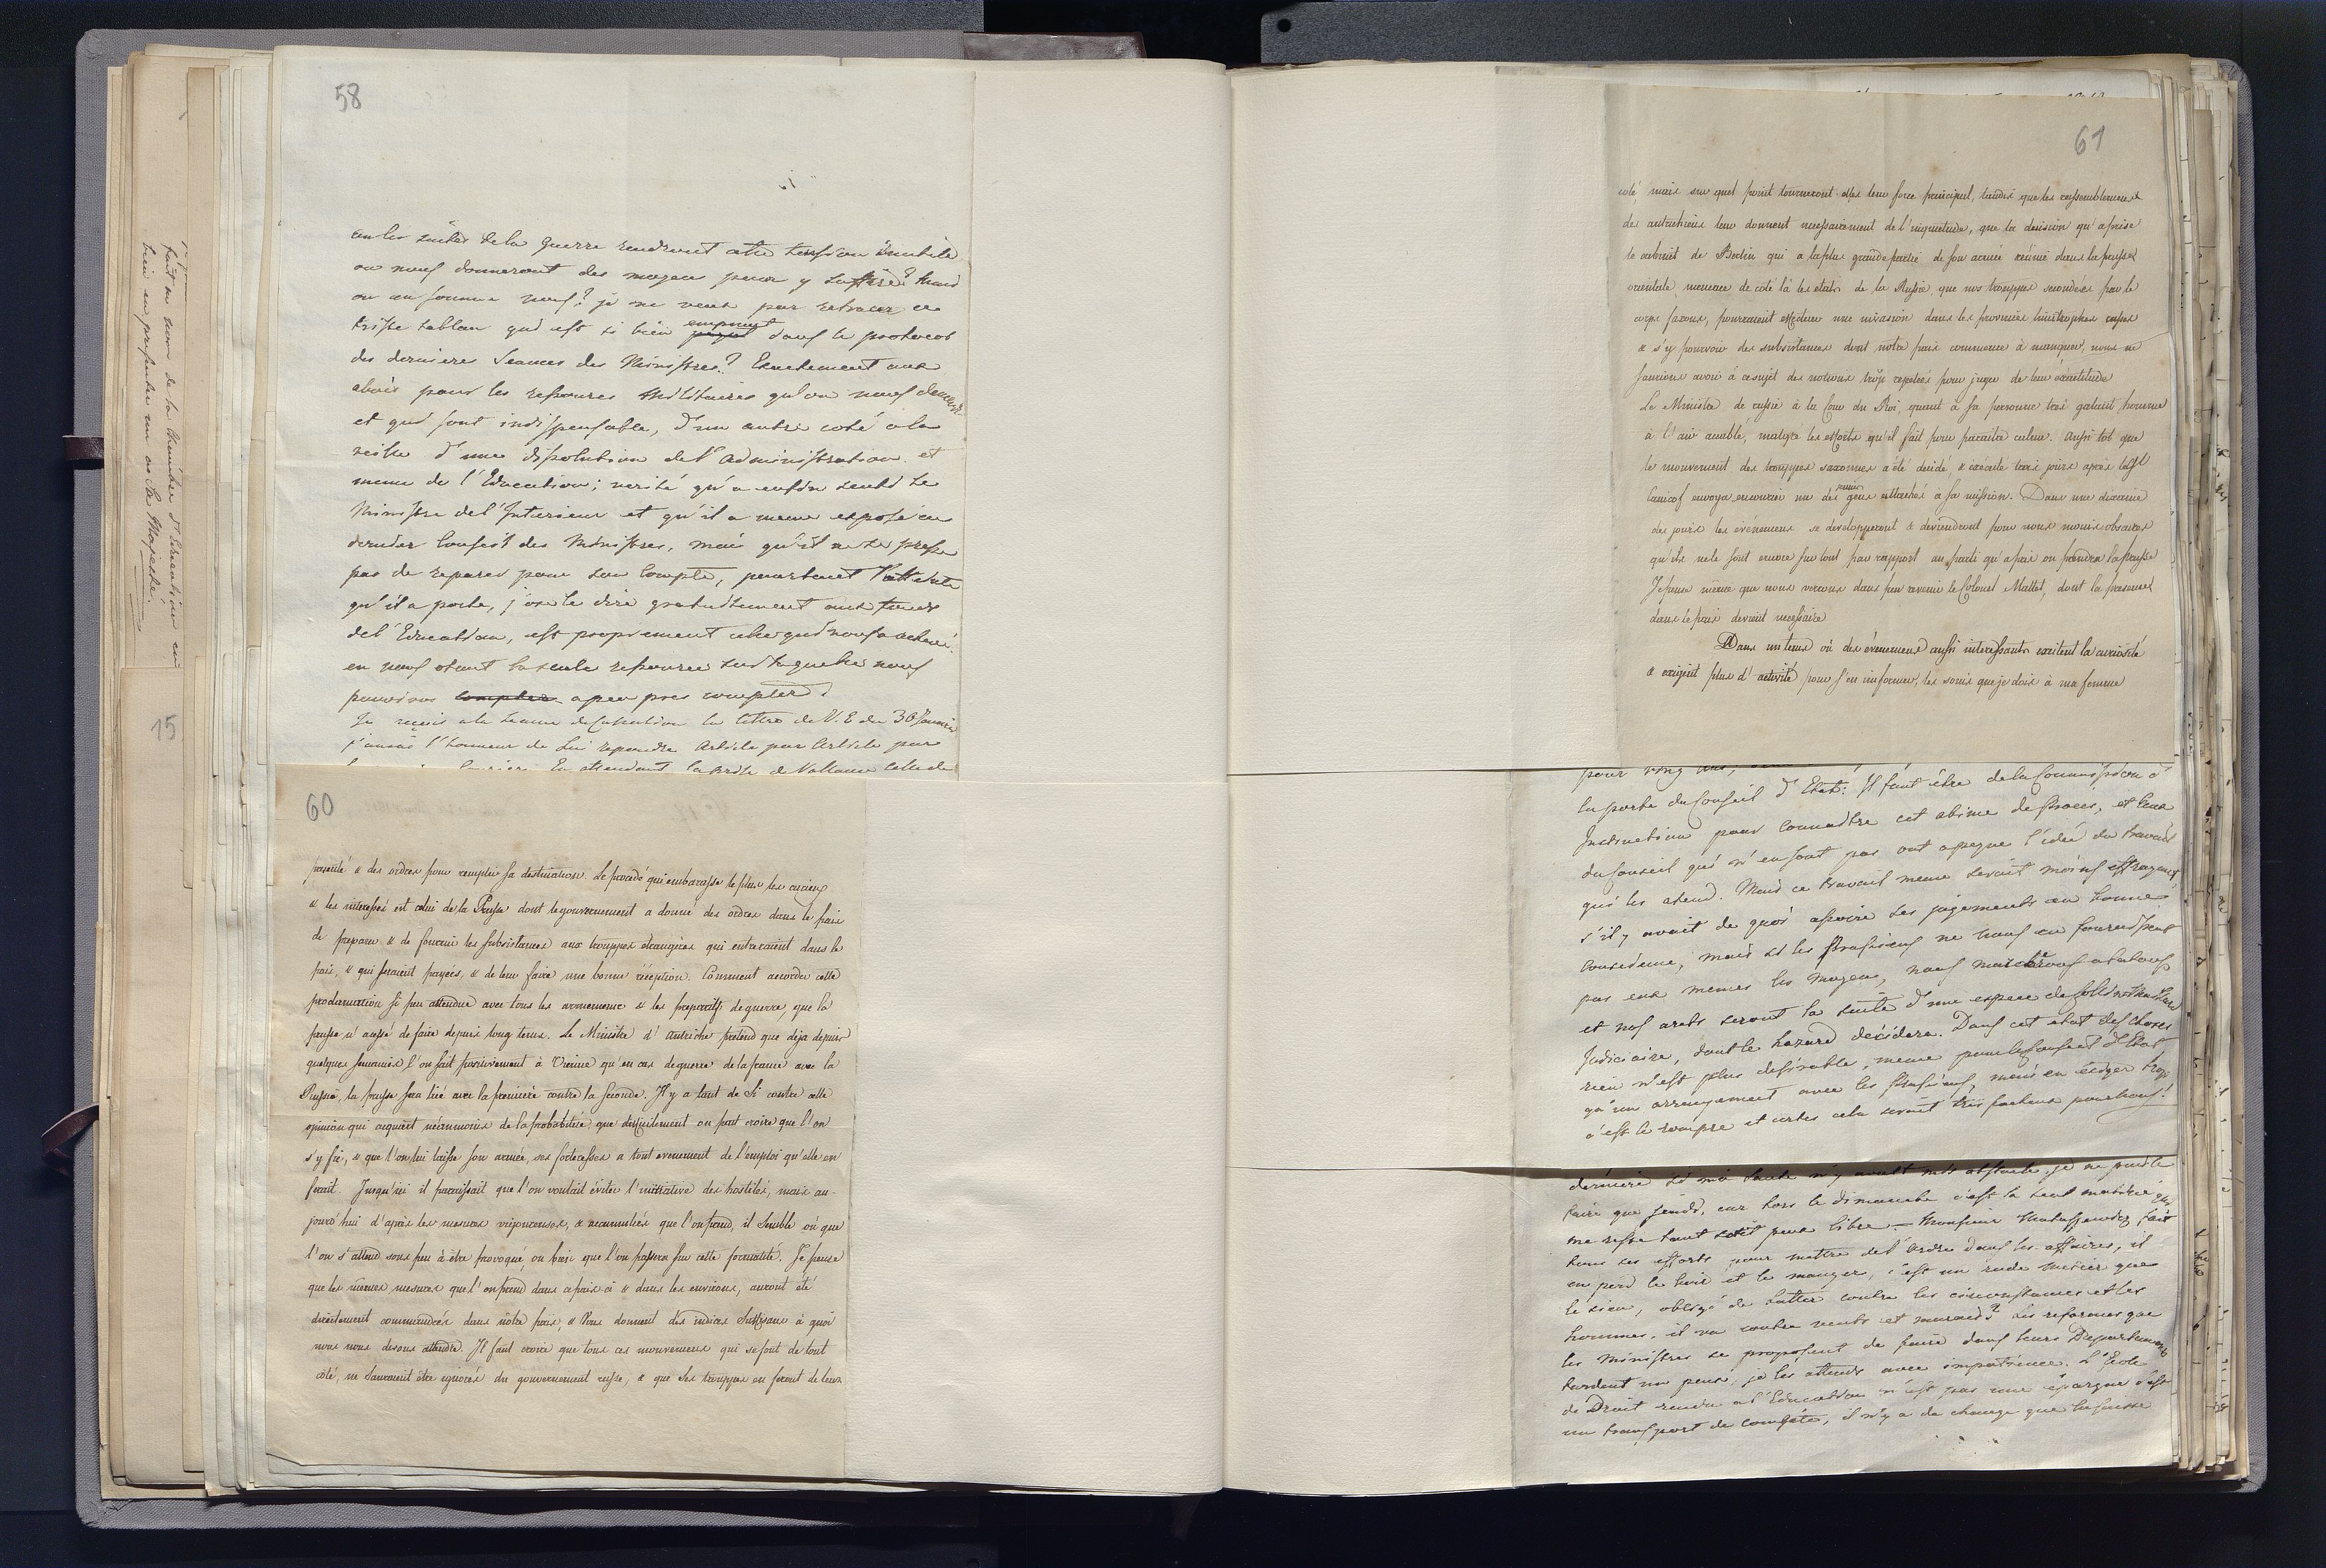 58
ou les suites de la guerre rendront cette tension inutile
ou nous donneront des moyens pour y suffire? Mais
ou en sommes nous? je ne veux pas retracer ce
triste tableau qui est si bien empreint dans le protocol
des dernieres Seances des Ministres? Exactement aux
abois pour les ressources Militaires qu'on nous demande
et qui sont indispensable, d'un autre coté a la
veille d'une dissolution de l'administration et
meme de l'Education; verité qu'a enfin senti le
Ministre de l'Interieur et qu'il a meme exposé au
dernier Conseil des Ministres, mais qu'il ne se presse
pas de reparer pour son compte, pourtant l'atteinte
qu'il a porté, j'ose le dire gratuitement aux fonds
de l'Education, est proprement celle qui nous a achevé
en nous otant la seule ressource sur laquelle nous
pouvions compter a peu pres compter!
Je reçois a la Seance de Cassation la lettre de V. E du 30 Janvier
j'aurai l'honneur de Lui repondre Article par Article par
En attendant la prise de Valence celle de
60
presenté & des ordres pour remplir sa destination. Le procedé qui embarasse le plus les curieux
& les interessés est celui de la Prusse dont le gouvernement a donné des ordres dans le païs
de preparer & de fournir les subsistances aux trouppes étrangères qui entreraient dans le
païs, & qui seraient payées, & de leur faire une bonne réception. Comment accorder cette
proclamation si peu attendue avec tous les armemens & les preparatifs de guerre, que la
prusse n'a cessé de faire depuis long tems. Le Ministre d'autriche pretend que deja depuis
quelques semaines l'on sait positivement à Vienne qu'en cas de guerre de la france avec la
Russie, la prusse sera liée avec la première contre la seconde. Il y a tant de si contre cette
opinion qui acquiert néanmoins de la probabilité, que difficilement on peut croire que l'on
s'y fie, & que l'on lui laisse son armée, ses forteresses a tout evenement de l'emploi qu'elle en
ferait. Jusqu'ici il paraissait que l'on voulait éviter l'initiative des hostilités, mais au-
jourd'hui d'après les mesures vigoureuses, & accumulées que l'on prend, il semble ou que
l'on s'attend sous peu à être provoqué, ou bien que l'on passera sur cette formalité. Je pense
que les mêmes mesures que l'on prend dans ce païs-ci & dans les environs, auront été
directement commandées dans nôtre païs, & Vous donnent des indices suffisans à quoi
nous nous devons attendre. Il faut croire que tous ces mouvemens qui se font de tout
côté, ne sauraient être ignorés du gouvernement russe, & que ses trouppes en feront de leur
61
coté, mais sur quel point tourneront elles leur force principal, tandis que les rassemblemens
des autrichiens leur donnent necessairement de l'inquietude, que la decision qu'a prise
le cabinet de Berlin qui a la plus grande partie de son armée réunie dans la prusse
orientale, menace de coté là les états de la Russie, que nos trouppes secondées par le
corps saxons, pourraient effectuer une invasion dans les provinces limitrophes russes
& s'y pourvoir des subsistances dont notre païs commence à manquer, nous ne
saurions avoir à ce sujet des notions trop repetées pour juger de leur exactitude
Le Ministre de russie à la Cour du Roi, quant à sa personne très galant homme
à l'air accablé, malgré les efforts qu'il fait pour paraitre calme. Aussi tot que
le mouvement des trouppes saxonnes a été decidé, & exécuté trois jours après le Gl
Canicof envoya en courier un des jeunes gens attachés à sa mission. Dans une dixaine
des jours les evénemens se developperont & deviendront pour nous moins obscures
qu'ils ne le sont encore sur tout par rapport au parti qu'a pris ou prendra la prusse
Je pense même que nous verrons dans peu revenir le Colonel Mallet, dont la presence
dans le païs devient necessaire
Dans un tems où des évenemens aussi interessants excitent la curiosité
& exigent plus d'activité pour s'en informer, les soins que je dois à ma femme
la porte du Conseil d'Etat: Il faut être de la Commission d'
Instruction pour connaitre cet abime de procès, et ceux
du Conseil qui n'en sont pas ont a peine l'idée du travail
qui les attend. Mais ce travail meme serait moins effrayant,
s'il y avait de quoi asseoir ses jugements en bonne
Conscience, mais si les Prussiens ne nous en fournissent
pas eux memes les moyens, nous marcherons a tatons
et nos arets seront la suite d'une espece de
Judiciaire, dont le hazard decidera. Dans cet etat des choses
rien n'est plus desirable, meme pour le Conseil d'Etat
qu'un arrangement avec les Prussiens, mais en exiger trop
c'est le rompre et certes cela serait tres facheux pour nous!
derniere si ma santé n'y avait mis obstacle, je ne puis le
faire que jeudi, car hors le dimanche c'est la seul matinée qui
me reste tant soit peu libre — Monsieur Matuszewicz fait
tous ses efforts pour mettre de l'ordre dans les affaires, il
en perd le boire et le manger, c'est un rude metier que
le sien, obligé de lutter contre les circonstances et les
hommes, il va contre vents et marées? Les reformes que
les Ministres se proposent de faire dans leurs Departements
tardent un peu, je les attends avec impatience. L'Ecole
de Droit rendue a l'Education n'est pas une épargne c'est
un transport de compte, il n'y a de change que la caisse
fait au nom de la Chambre d'Education en
lui en presenter un a Sa Majesté.
15